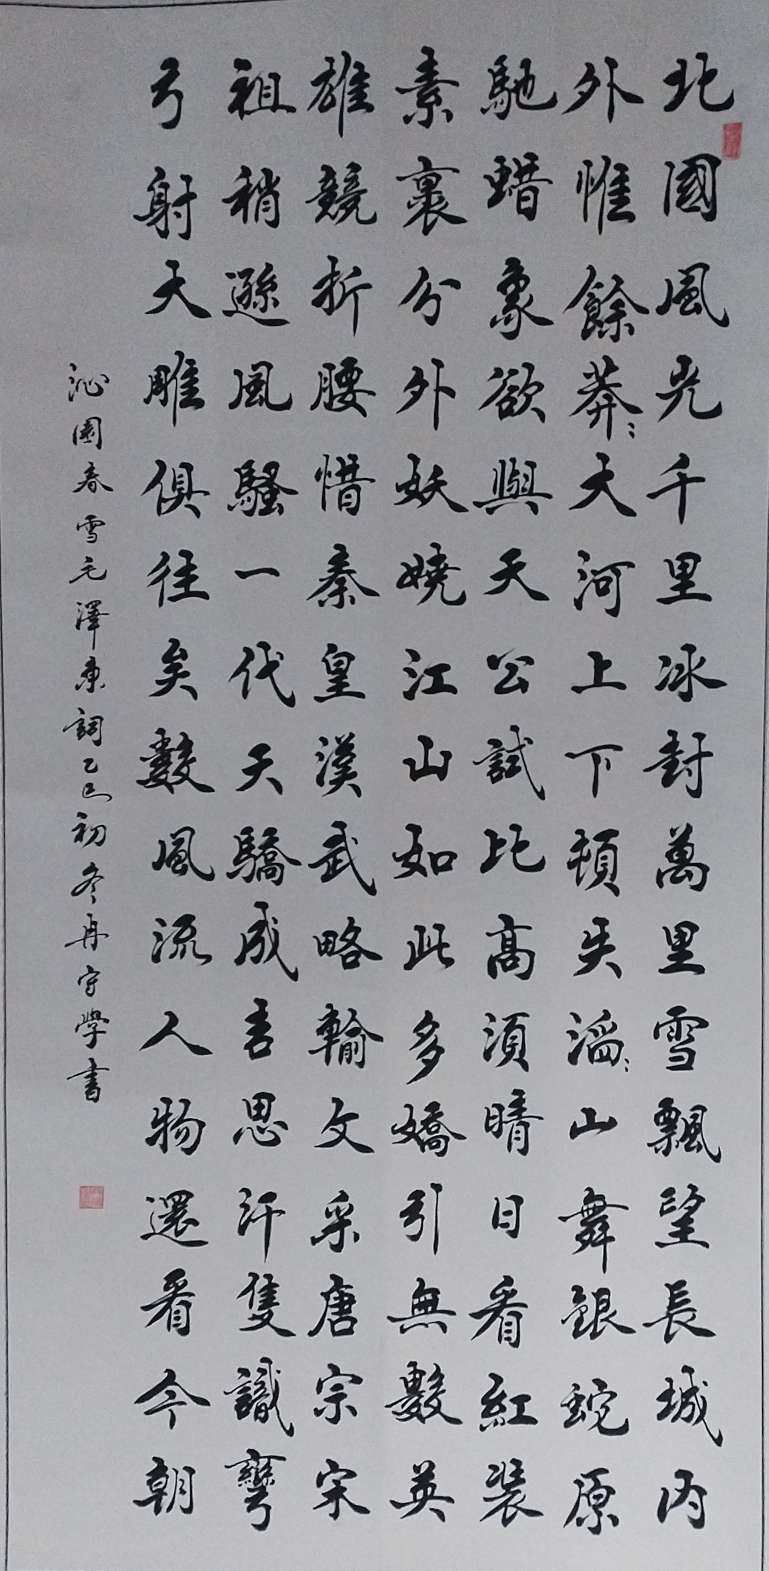 北國風光千里冰封萬里雪飄望長城内
外惟餘莽〻大河上下頓失滔〻山舞銀蛇原
馳蜡象欲與天公試比高須晴日看紅裝
素裹分外妖嬈江山如此多嬌引無數英
雄競折腰惜秦皇漢武略輸文采唐宗宋
祖稍遜風騷一代天驕成吉思汗隻識彎
弓射大雕俱往矣數風流人物還看今朝
沁園春雪毛澤東詞乙巳初冬冉守學書